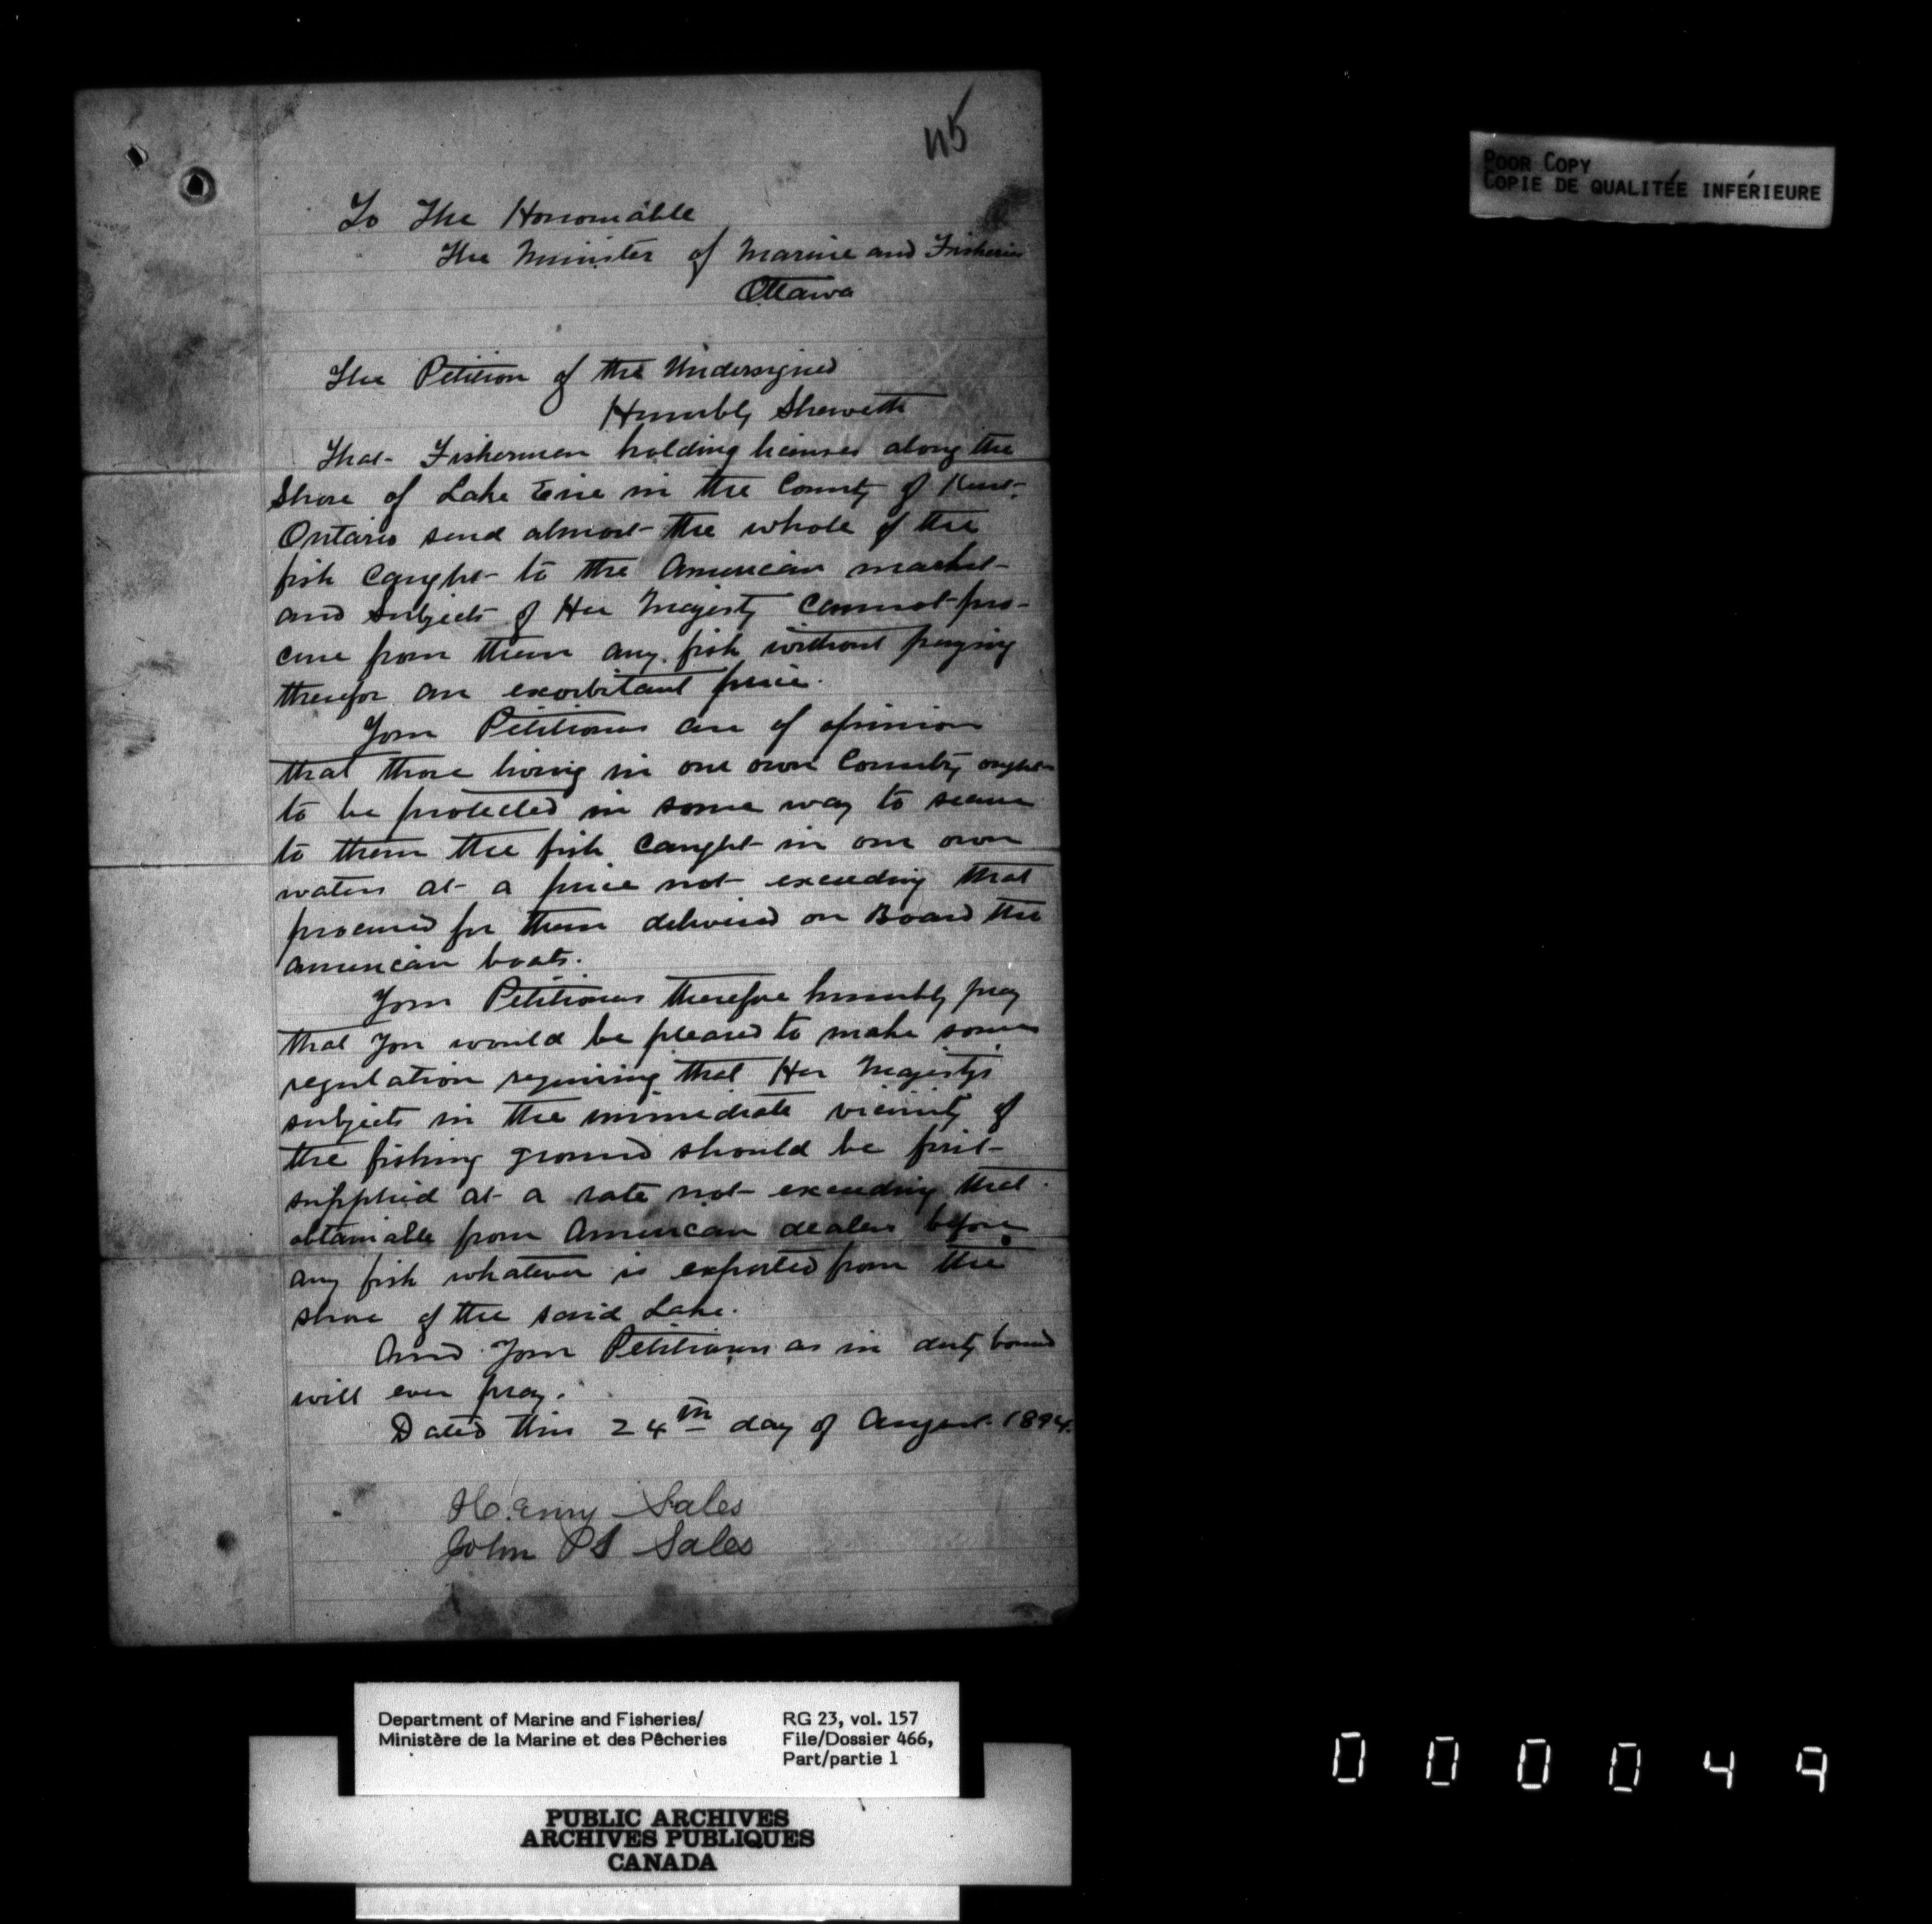 45
POOR COPY
COPIE DE QUALITÉE INFÉRIEURE
To The Honourable
The Minister of Marine and Fisheries
Ottawa
The Petition of the Undersigned
Humbly Sheweth
That Fishermen holding licenses along the
Shore of Lake Erie in the County of Kent
Ontario send almost the whole of the
fish caught to the American market
and subjects of Her Majesty cannot pro-
cure from them any fish without paying
therefor an exorbitant price.
Your Petitioners are of opinion
that those living in our own Country ought
to be protected in some way to secure
to them the fish caught in our own
waters at a price not exceeding that
procured for them delivered on Board the
American boats.
Your Petitioners therefore humbly pray
that you would be pleased to make some
regulation requiring that Her Majesty's
subjects in the immediate vicinity of
the fishing ground should be first
supplied at a rate not exceeding that
obtainable from American dealers before
any fish whatever is exported from the
shore of the said Lake.
And Your Petitioners as in duty bound
will ever pray.
Dated this 24th day of August 1894.
Henry Sales
John PS Sales
Department of Marine and Fisheries/
Ministère de la Marine et des Pêcheries
RG 23, vol. 157
File/Dossier 466,
Part/partie 1
PUBLIC ARCHIVES
ARCHIVES PUBLIQUES
CANADA
000049